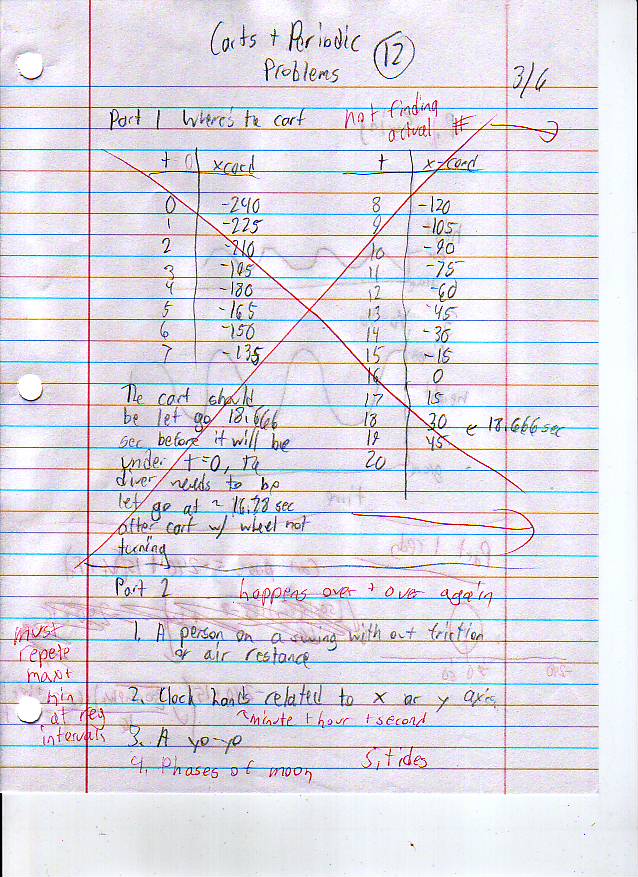 Carts + Periodic
Problems
12
3/6
Part 1 Where's the cart
not finding
actual #
t 0 xcord
0 -240
1 -225
2 -210
3 -195
4 -180
5 -165
6 -150
7 -135
t x-cord
8 -120
9 -105
10 -90
11 -75
12 -60
13 -45
14 -30
15 -15
16 0
17 15
18 30 @ 18.666 sec
19 45
20
The cart should
be let go 18.666
sec before it will be
under t=0, the
diver needs to be
let go at ~ 16.28 sec
after cart w/ wheel not
turning
Part 2 happens over + over again
must
repete
max +
min
at reg
intervals
1. A person on a swing with out friction
or air restance
2. Clock hands related to x or y axis,
^minute + hour + second
3. A yo-yo
4. Phases of moon
5. tides